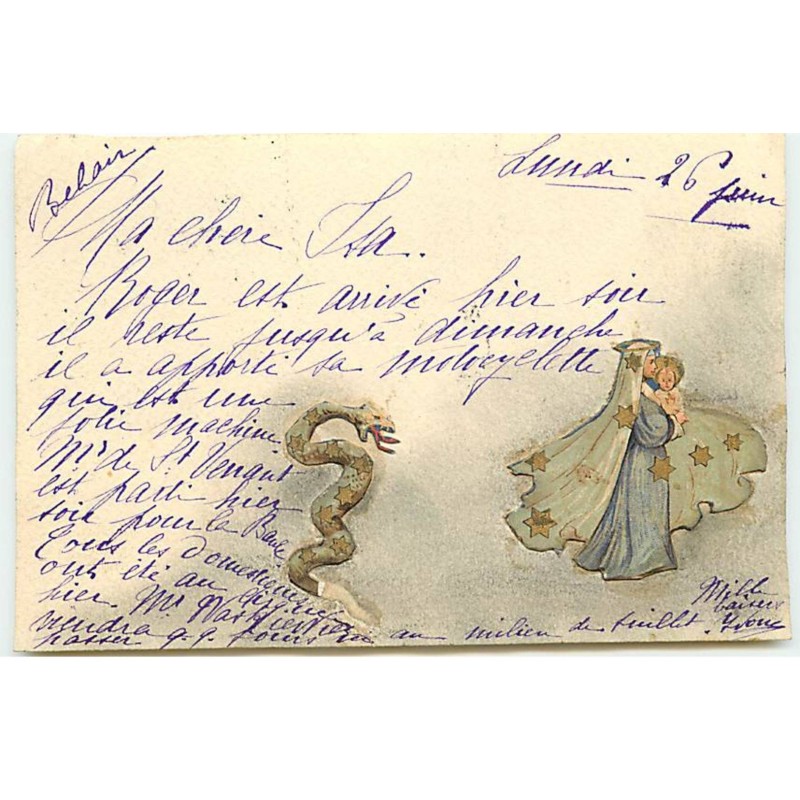 Belair
Lundi 26 juin
Ma chère Isa.
Roger est arrivé hier soir
il reste jusqu'à dimanche
il a apporté sa motocyclette
qui est une
jolie machine.
Mr de St
est parti hier
soir pour la
Tous les Domestiques
ont été au
hier. Mr
viendra
passer q.q. jours au milieu de Juillet.
Mille
baisers
Yvonne